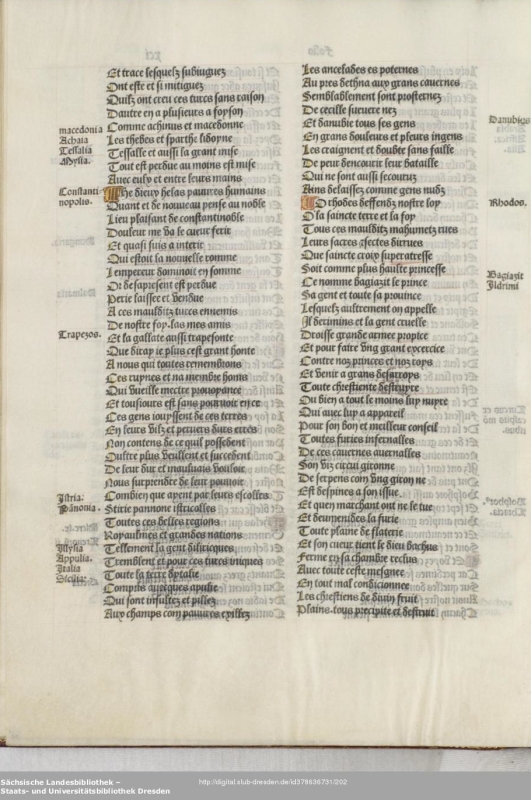 Et trace lesquelz subiuguez
Ont este et si mitiguez
Quilz ont creu ces turcs sans raison
Dautre en a plusieurs a foyson
macedonia
Comme achinus et macedonne
Achaia
Les thebes et sparthe sidoyne
Tessalia
Tessalle et aussi la grant mise
Mysia.
Tout est perdue au moins est mise
Avec eulx et entre leurs mains
Constantinopolis.
He dieux helas pauures humains
Quant et de nouueau pense au noble
Lieu plaisant de constantinoble
Douleur me va le cueur ferir
Et quasi suis a
Qui estoit la nouuelle romme
Lempereur dominoit en somme
Or desapresent est perdue
Perie laissee et vendue
A ces maulditz turcs ennemis
De nostre foy. las mes amis
Trapezos.
Et la gallate aussi trapesonte
Que diray ie plus cest grant honte
A nous qui toutes remembrons
Ces ruynes et na membre homs
Qui vueille mectre
Et tousiours est sans
Ces gens iouyssent de ces terres
En leurs vilz et peruers
Non contens de ce quil possedent
Oultre plus veullent et succedent
De leur dur et mauluais vouloir
Nous surprendre de leur pouuoir
Istria.
Combien que ayent par leurs escolles
Pānonia.
Stirie pannone istricolles
Toutes ces belles regions
Royaulmes et grandes nations
Illysia
Tellement la gent
Appulia.
Tremblent et pour ces turcs iniques
Italia
Toute la terre dytalie
Sicilia;
Comprins auecques apulie
Qui sont insultez et pillez
Aux champs com pauures exillez
Les ancelades es poternes
Au pres dethna aux grans cauernes
Semblablement sont prosternez
De cecille
Danubius
Et danubie tous ses gens
En grans douleurs et pleurs ingens
Les craignent et doubte sans faille
De peur dencourir leur bataille
Qui ne sont aussi secouruz
Ains delaissez comme gens nudz
Rhodos.
O rhodes deffendz nostre loy
O la saincte terre et la foy
Tous ces maulditz mahumetz tues
Leurs sacres
Que saincte croix superatresse
Soit comme plus haulte princesse
Bagiazit
Ce nomme bagiazit le prince
Ildrimi
Sa gent et toute sa prouince
Lesquelz aultrement on appelle
Ildrimins et la gent cruelle
Droisse grande armee propice
Et pour faire vng grant exercice
Contre noz princes et noz roys
Et venir a grans desarroys
Toute chrestiente destruyre
Ou bien a tout le moins luy nuyre
Qui auec luy a appareil
Pour son bon et meilleur conseil
Toutes furies infernalles
De ces cauernes auernalles
Son viz circui gironne
De serpens com vng giron ne
Est despines a son issue
Et quen marchant ont ne le tue
Et deumenides la furie
Toute plaine de flaterie
Et son cueur tient le dieu bachus
Ferme en sa chambre reclus
Auec toute ceste mesgnee
En tout mal condicionnee
Les chrestiens de diuin fruit
Plains. tous precipite et destruit
Sächsische Landesbibliothek –
Staats- und Universitätsbibliothek Dresden
http://digital.slub-dresden.de/id379636731/202